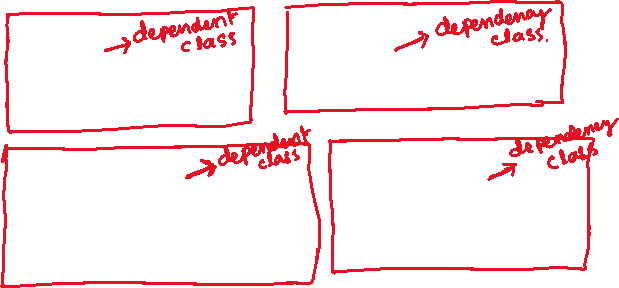 dependent
class
dependency
class.
dependent
class
dependency
class